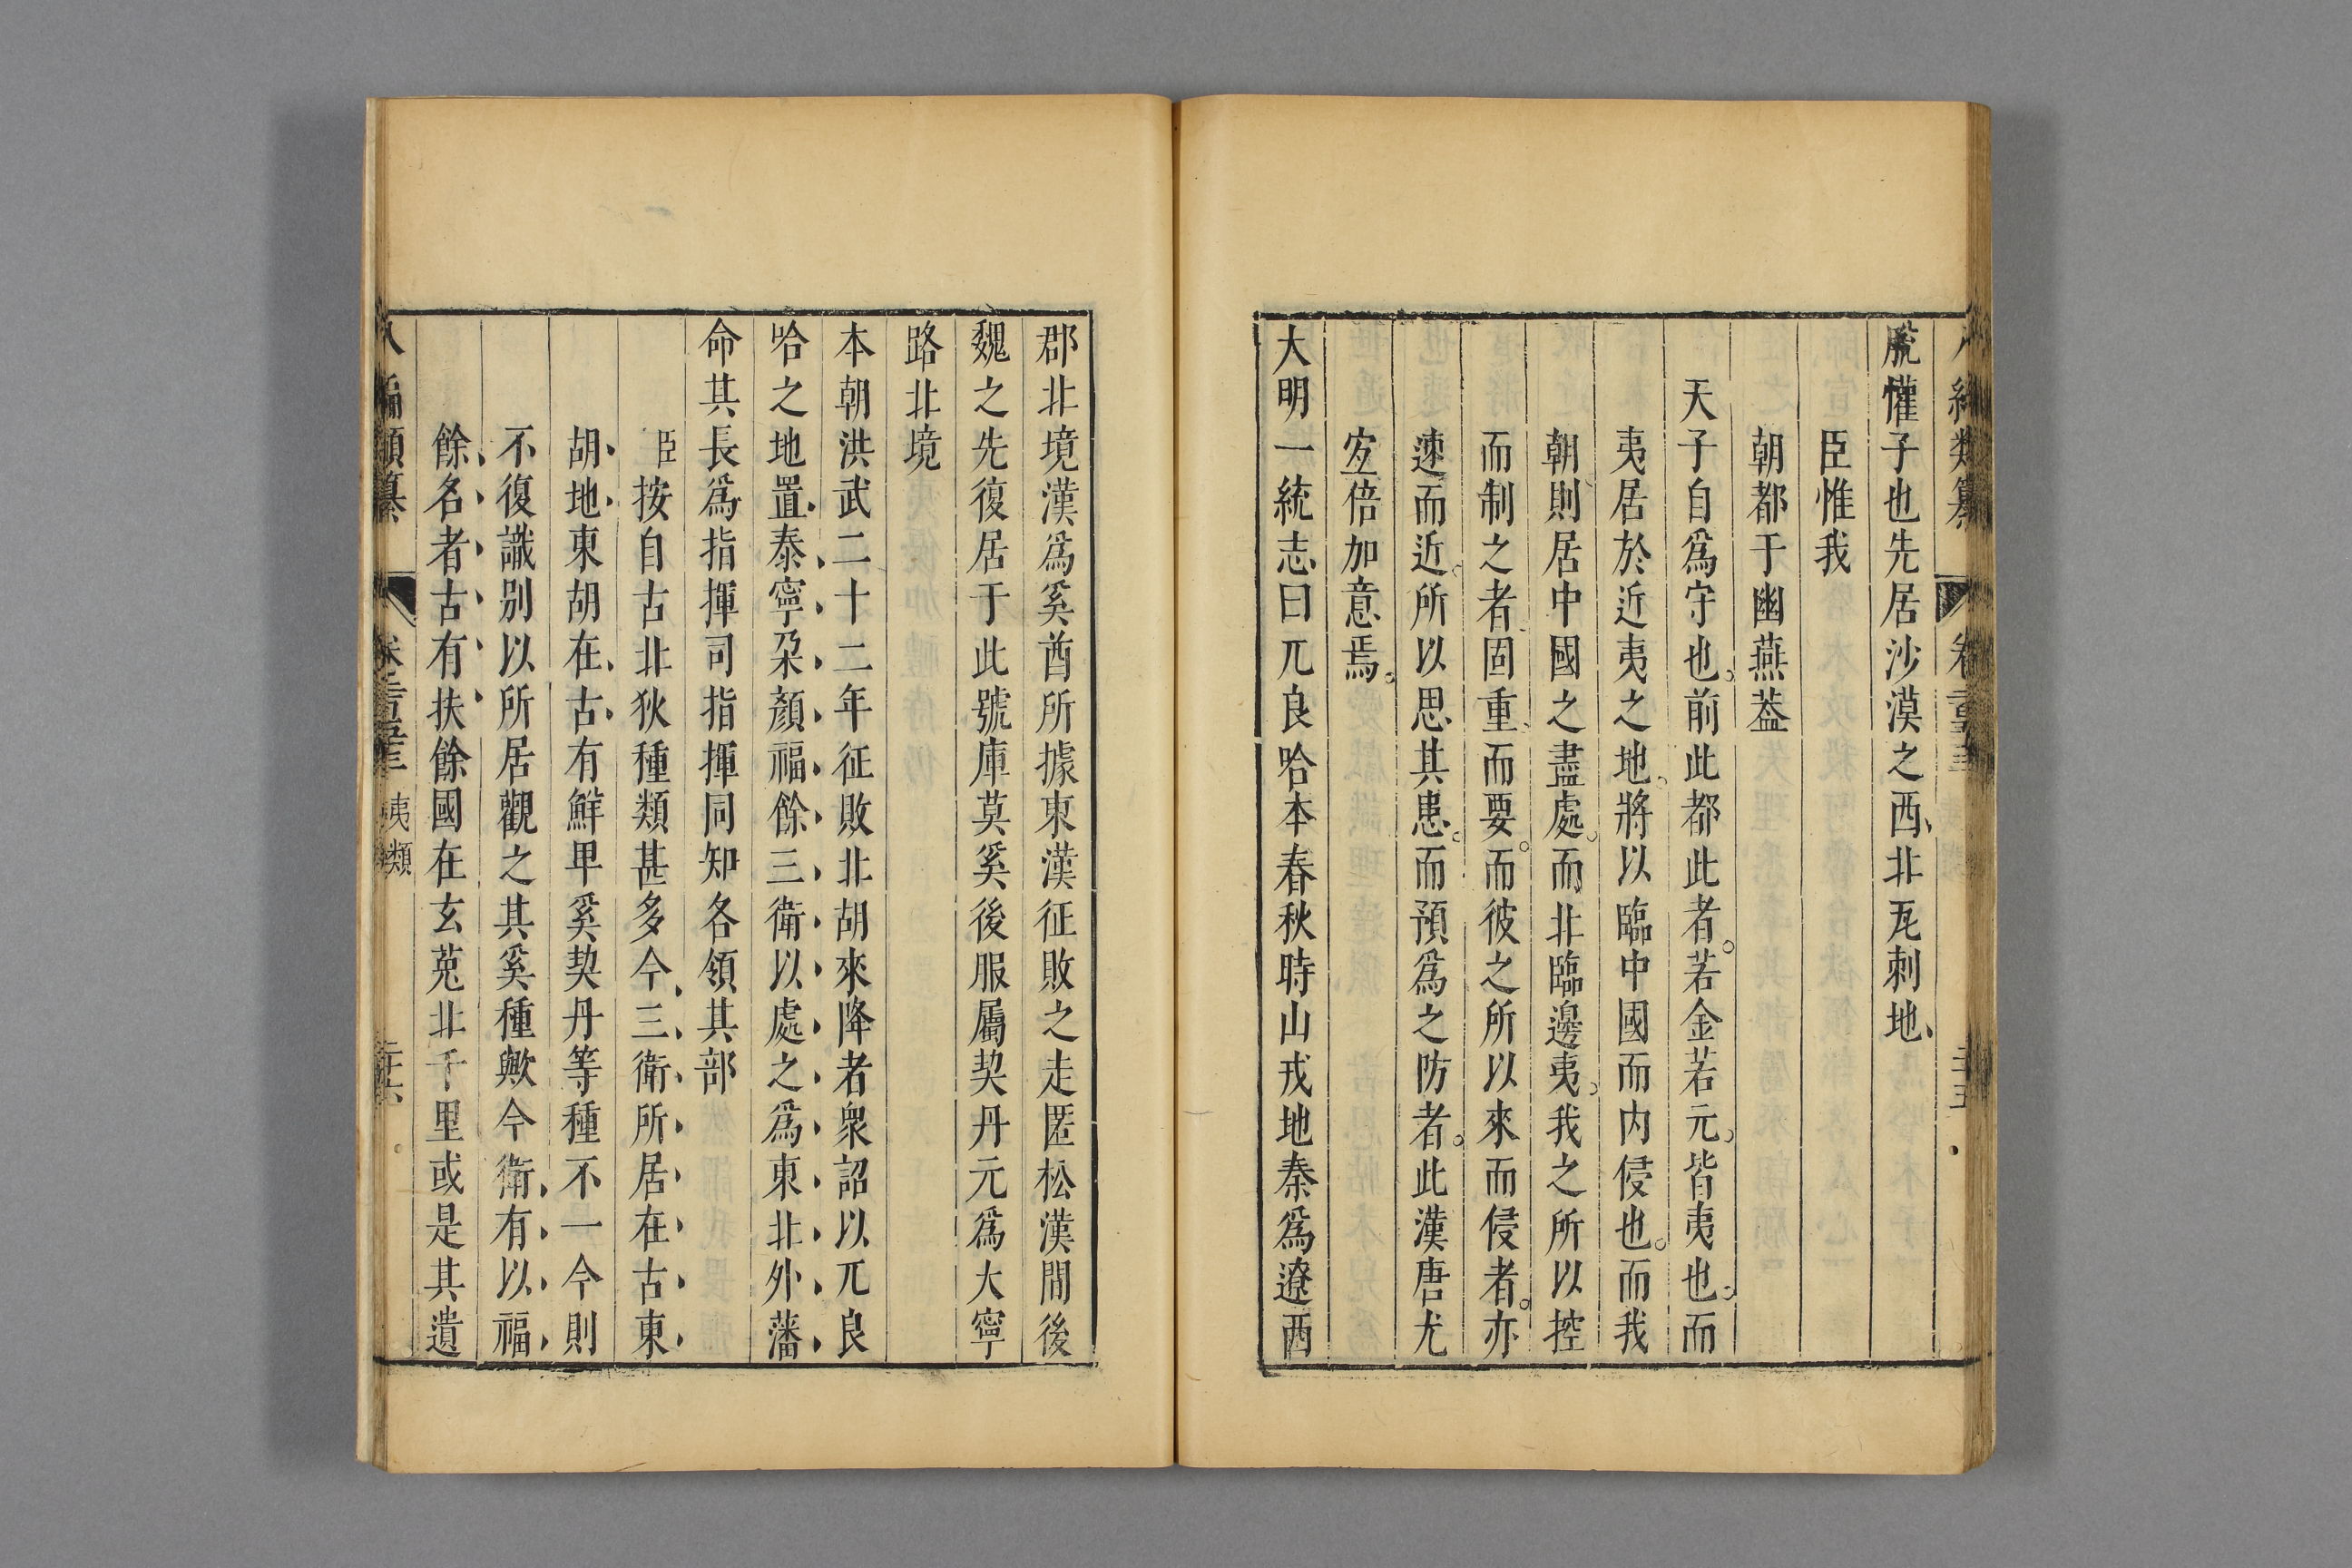 脫懽子也先居沙漠之西北瓦剌地
臣惟我
朝都于幽燕葢
天子自爲守也。前此都此者。若金若元。皆夷也。而
夷居於近夷之地。將以臨中國而内侵也。而我
朝則居中國之盡處。而北臨邊夷。我之所以控
而制之者。固重而要。而彼之所以來而侵者。亦
速而近。所以思其患。而預爲之防者。此漢唐尤
宐倍加意焉。
大明一統志曰兀良哈本春秋時山戎地秦爲遼西
郡北境漢爲奚酋所據東漢征敗之走匿松漠間後
魏之先復居于此號庫莫奚後服屬契丹元爲大寧
路北境
本朝洪武二十二年征敗北胡來降者衆詔以兀良
哈之地置泰寧朶顏福餘三衛以處之爲東北外藩
命其長爲指揮司指揮同知各領其部
臣按自古北狄種類甚多今三衛所居在古東
胡地東胡在古有鮮卑奚契丹等種不一今則
不復識別以所居觀之其奚種歟今衛有以福
餘名者古有扶餘國在玄菟北千里或是其遺
八編類纂 卷 夷類 二十六